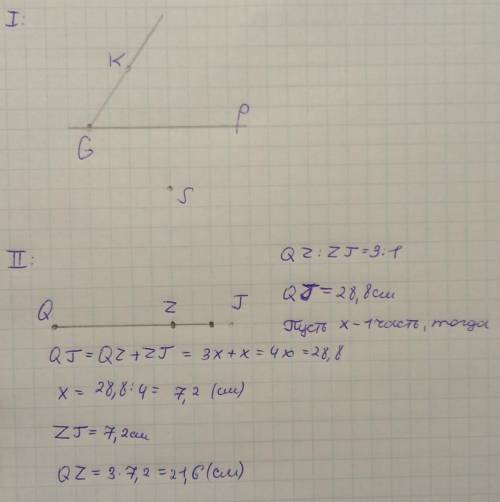 I:
K
P
G
S
II:
QZ:ZJ=3:1
QJ=28,8см
Q Z J
Пусть x-1часть, тогда
QJ=QZ+ZJ = 3x+x=4x=28,8
x = 28,8:4= 7,2 (см)
ZJ=7,2см
QZ=3·7,2=21,6(см)